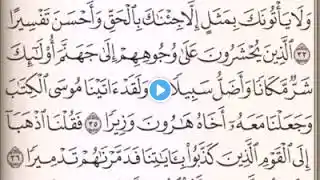 وَلَا يَأْتُونَكَ بِمَثَلٍ إِلَّا جِئْنَٰكَ بِٱلْحَقِّ وَأَحْسَنَ تَفْسِيرًا
٣٣ ٱلَّذِينَ يُحْشَرُونَ عَلَىٰ وُجُوهِهِمْ إِلَىٰ جَهَنَّمَ أُو۟لَٰٓئِكَ
شَرٌّ مَّكَانًا وَأَضَلُّ سَبِيلًا وَلَقَدْ ءَاتَيْنَا مُوسَى ٱلْكِتَٰبَ
وَجَعَلْنَا مَعَهُۥٓ أَخَاهُ هَٰرُونَ وَزِيرًا ٣٥ فَقُلْنَا ٱذْهَبَآ
إِلَى ٱلْقَوْمِ ٱلَّذِينَ كَذَّبُوا۟ بِـَٔايَٰتِنَا فَدَمَّرْنَٰهُمْ تَدْمِيرًا ٣٦